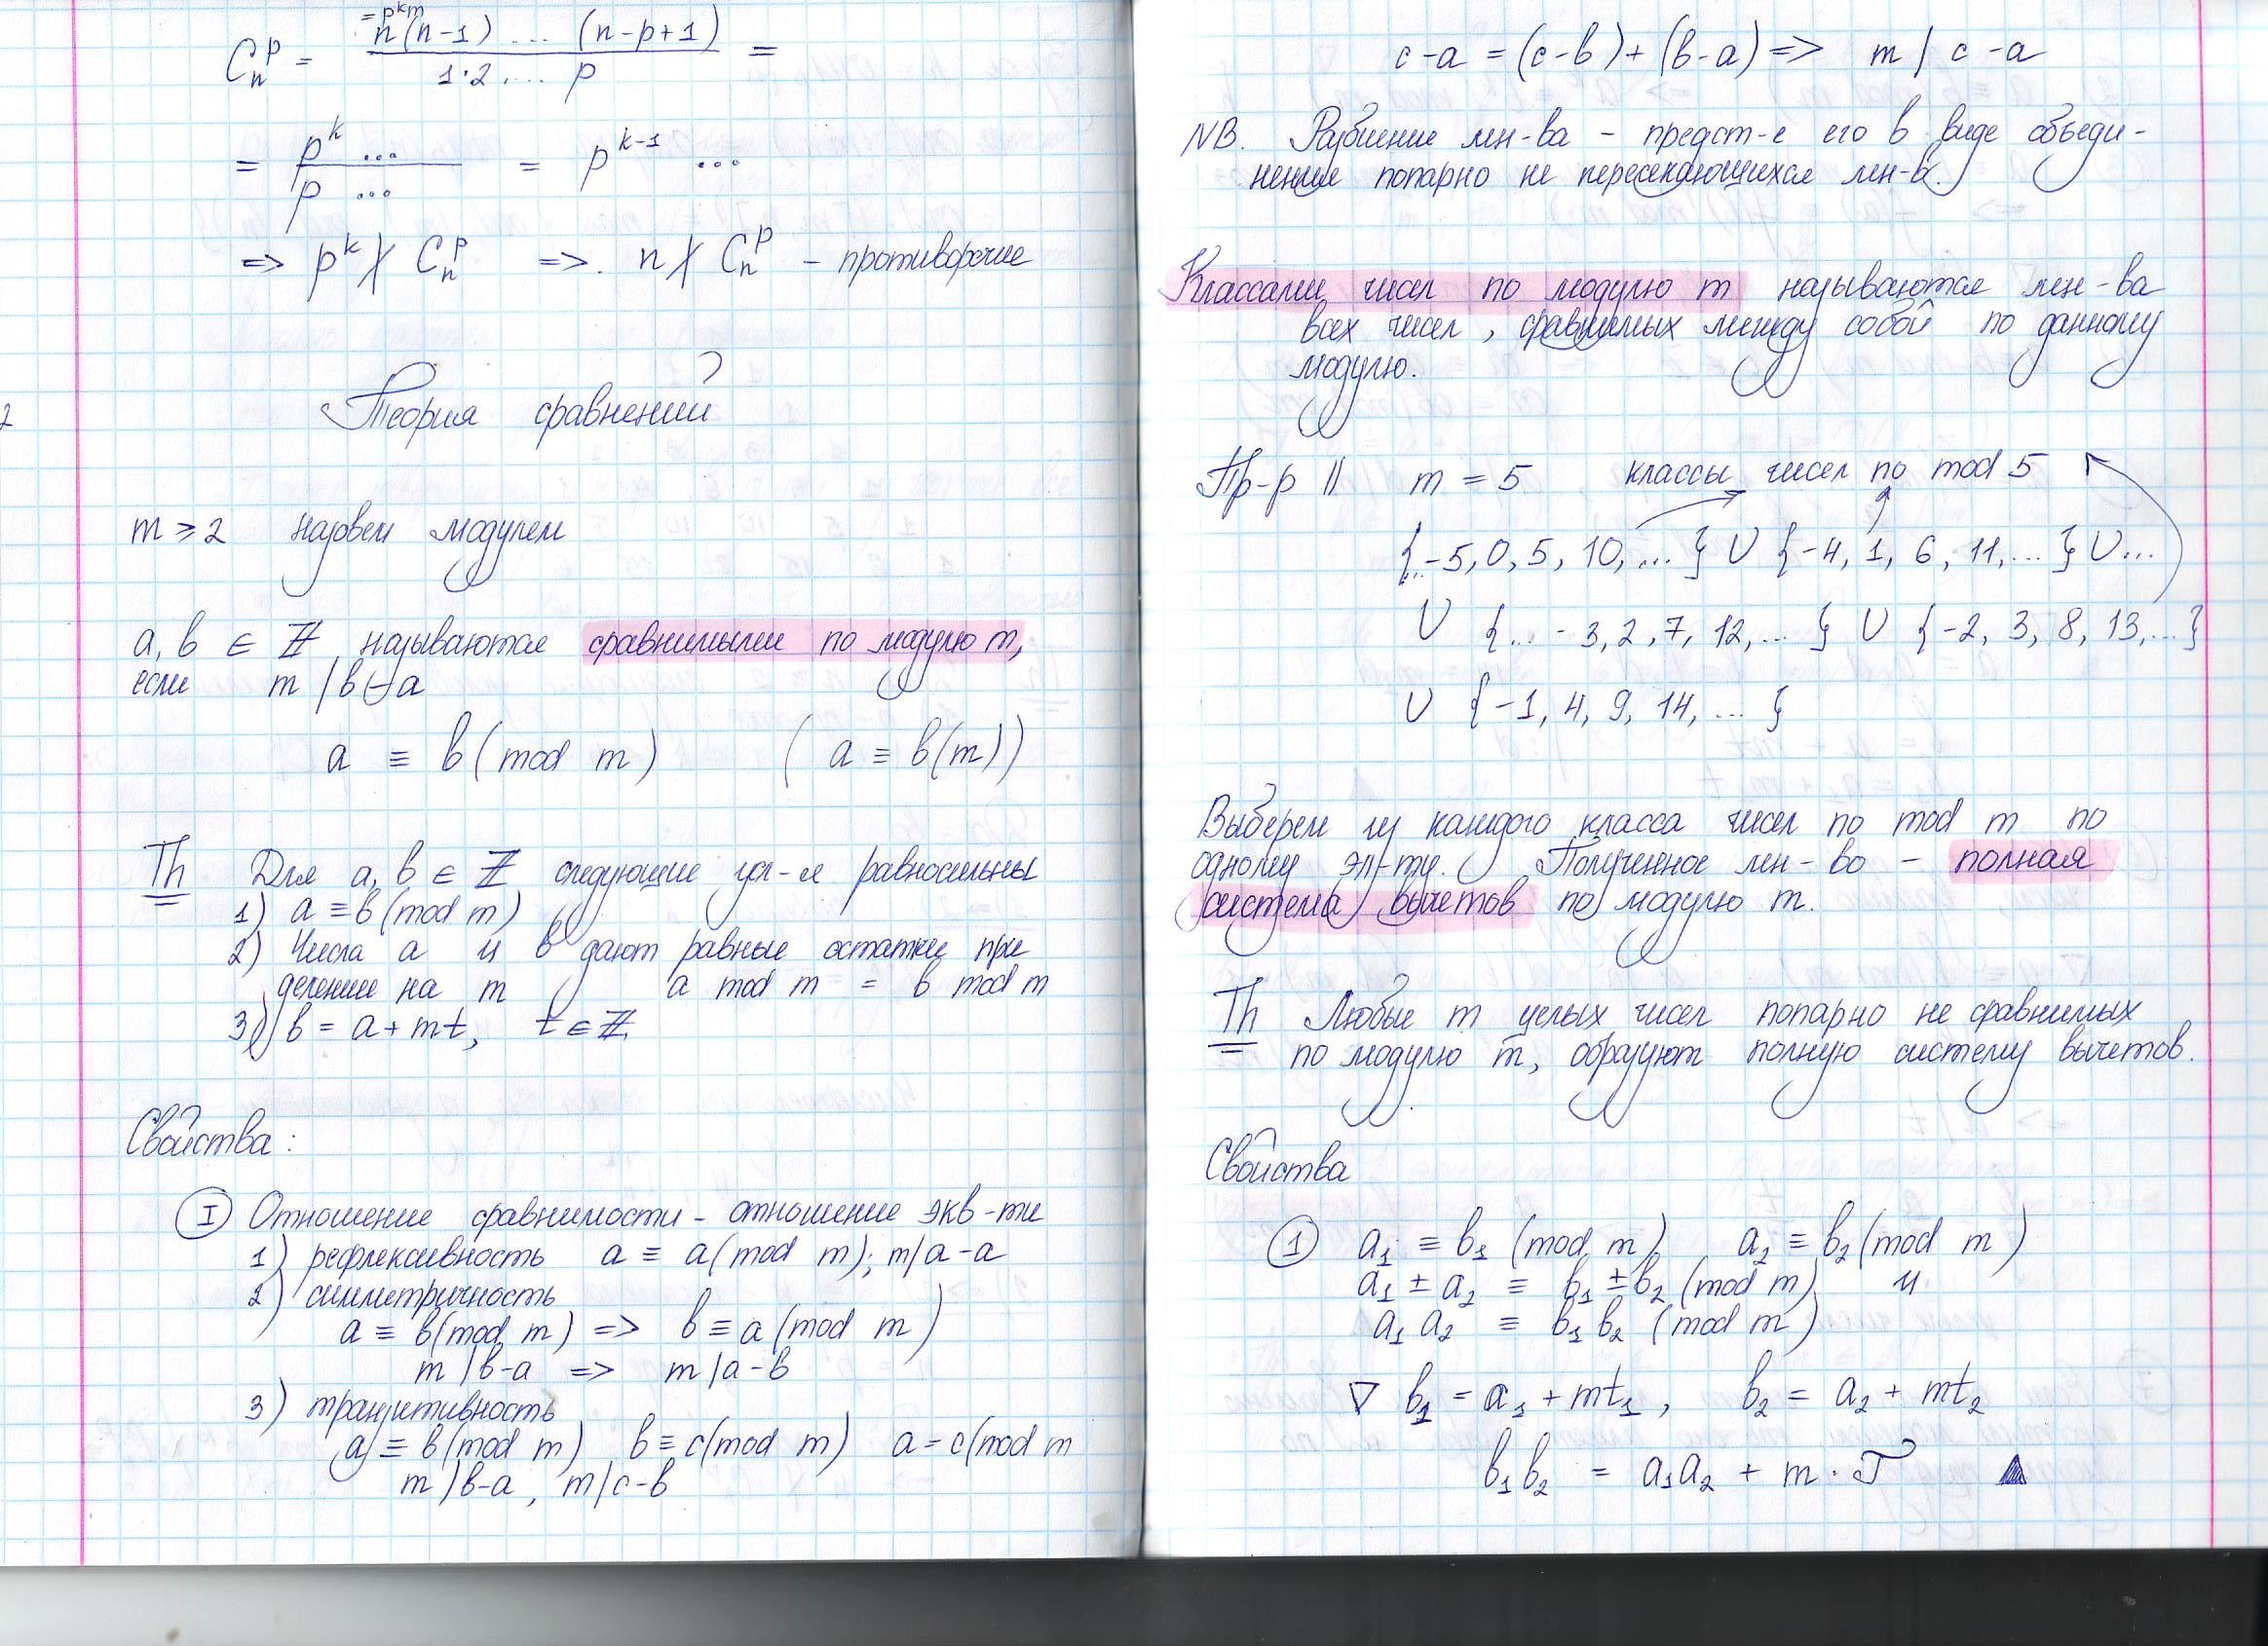 = p^k m
C_n^p = n(n-1) ... (n-p+1) / 1·2 .... p =
= p^k ... / p ... = p^{k-1} ...
=> p^k ∤ C_n^p => n ∤ C_n^p – противоречие
Теория сравнений
2
m ≥ 2 назовем модулем
a, b ∈ ℤ называются сравнимыми по модулю m,
если m | b - a
a ≡ b (mod m) ( a ≡ b(m))
Th Для a, b ∈ ℤ следующие усл-я равносильны
1) a ≡ b (mod m)
2) Числа a и b дают равные остатки при
делении на m a mod m = b mod m
3) b = a + mt, t ∈ ℤ
Свойства:
I Отношение сравнимости - отношение экв-ти
1) рефлексивность a ≡ a (mod m); m/a-a
2) симметричность
a ≡ b(mod m) => b ≡ a (mod m)
m | b-a => m | a-b
3) транзитивность
a ≡ b (mod m) b ≡ c(mod m) a = c(mod m
m | b-a, m | c-b
c-a = (c-b) + (b-a) => m | c-a
NB. Разбиение мн-ва – предст-е его в виде объеди-
нения попарно не пересекающихся мн-в.
Классами чисел по модулю m называются мн-ва
всех чисел, сравнимых между собой по данному
модулю.
Пр-р || m = 5 классы чисел по mod 5
{..-5, 0, 5, 10, ... } ∪ {-4, 1, 6, 11, ... } ∪ ...
∪ {... - 3, 2, 7, 12, ... } ∪ {-2, 3, 8, 13, ...}
∪ {-1, 4, 9, 14, ... }
Выберем из каждого класса чисел по mod m по
одному эл-ту. Полученное мн-во – полная
система вычетов по модулю m.
Th Любые m целых чисел попарно не сравнимых
по модулю m, образуют полную систему вычетов.
Свойства
1 a₁ ≡ b₁ (mod m) a₂ ≡ b₂ (mod m)
a₁ ± a₂ ≡ b₁ ± b₂ (mod m) и
a₁ a₂ ≡ b₁ b₂ (mod m)
▽ b₁ = a₁ + mt₁, b₂ = a₂ + mt₂
b₁b₂ = a₁a₂ + m · T ▲